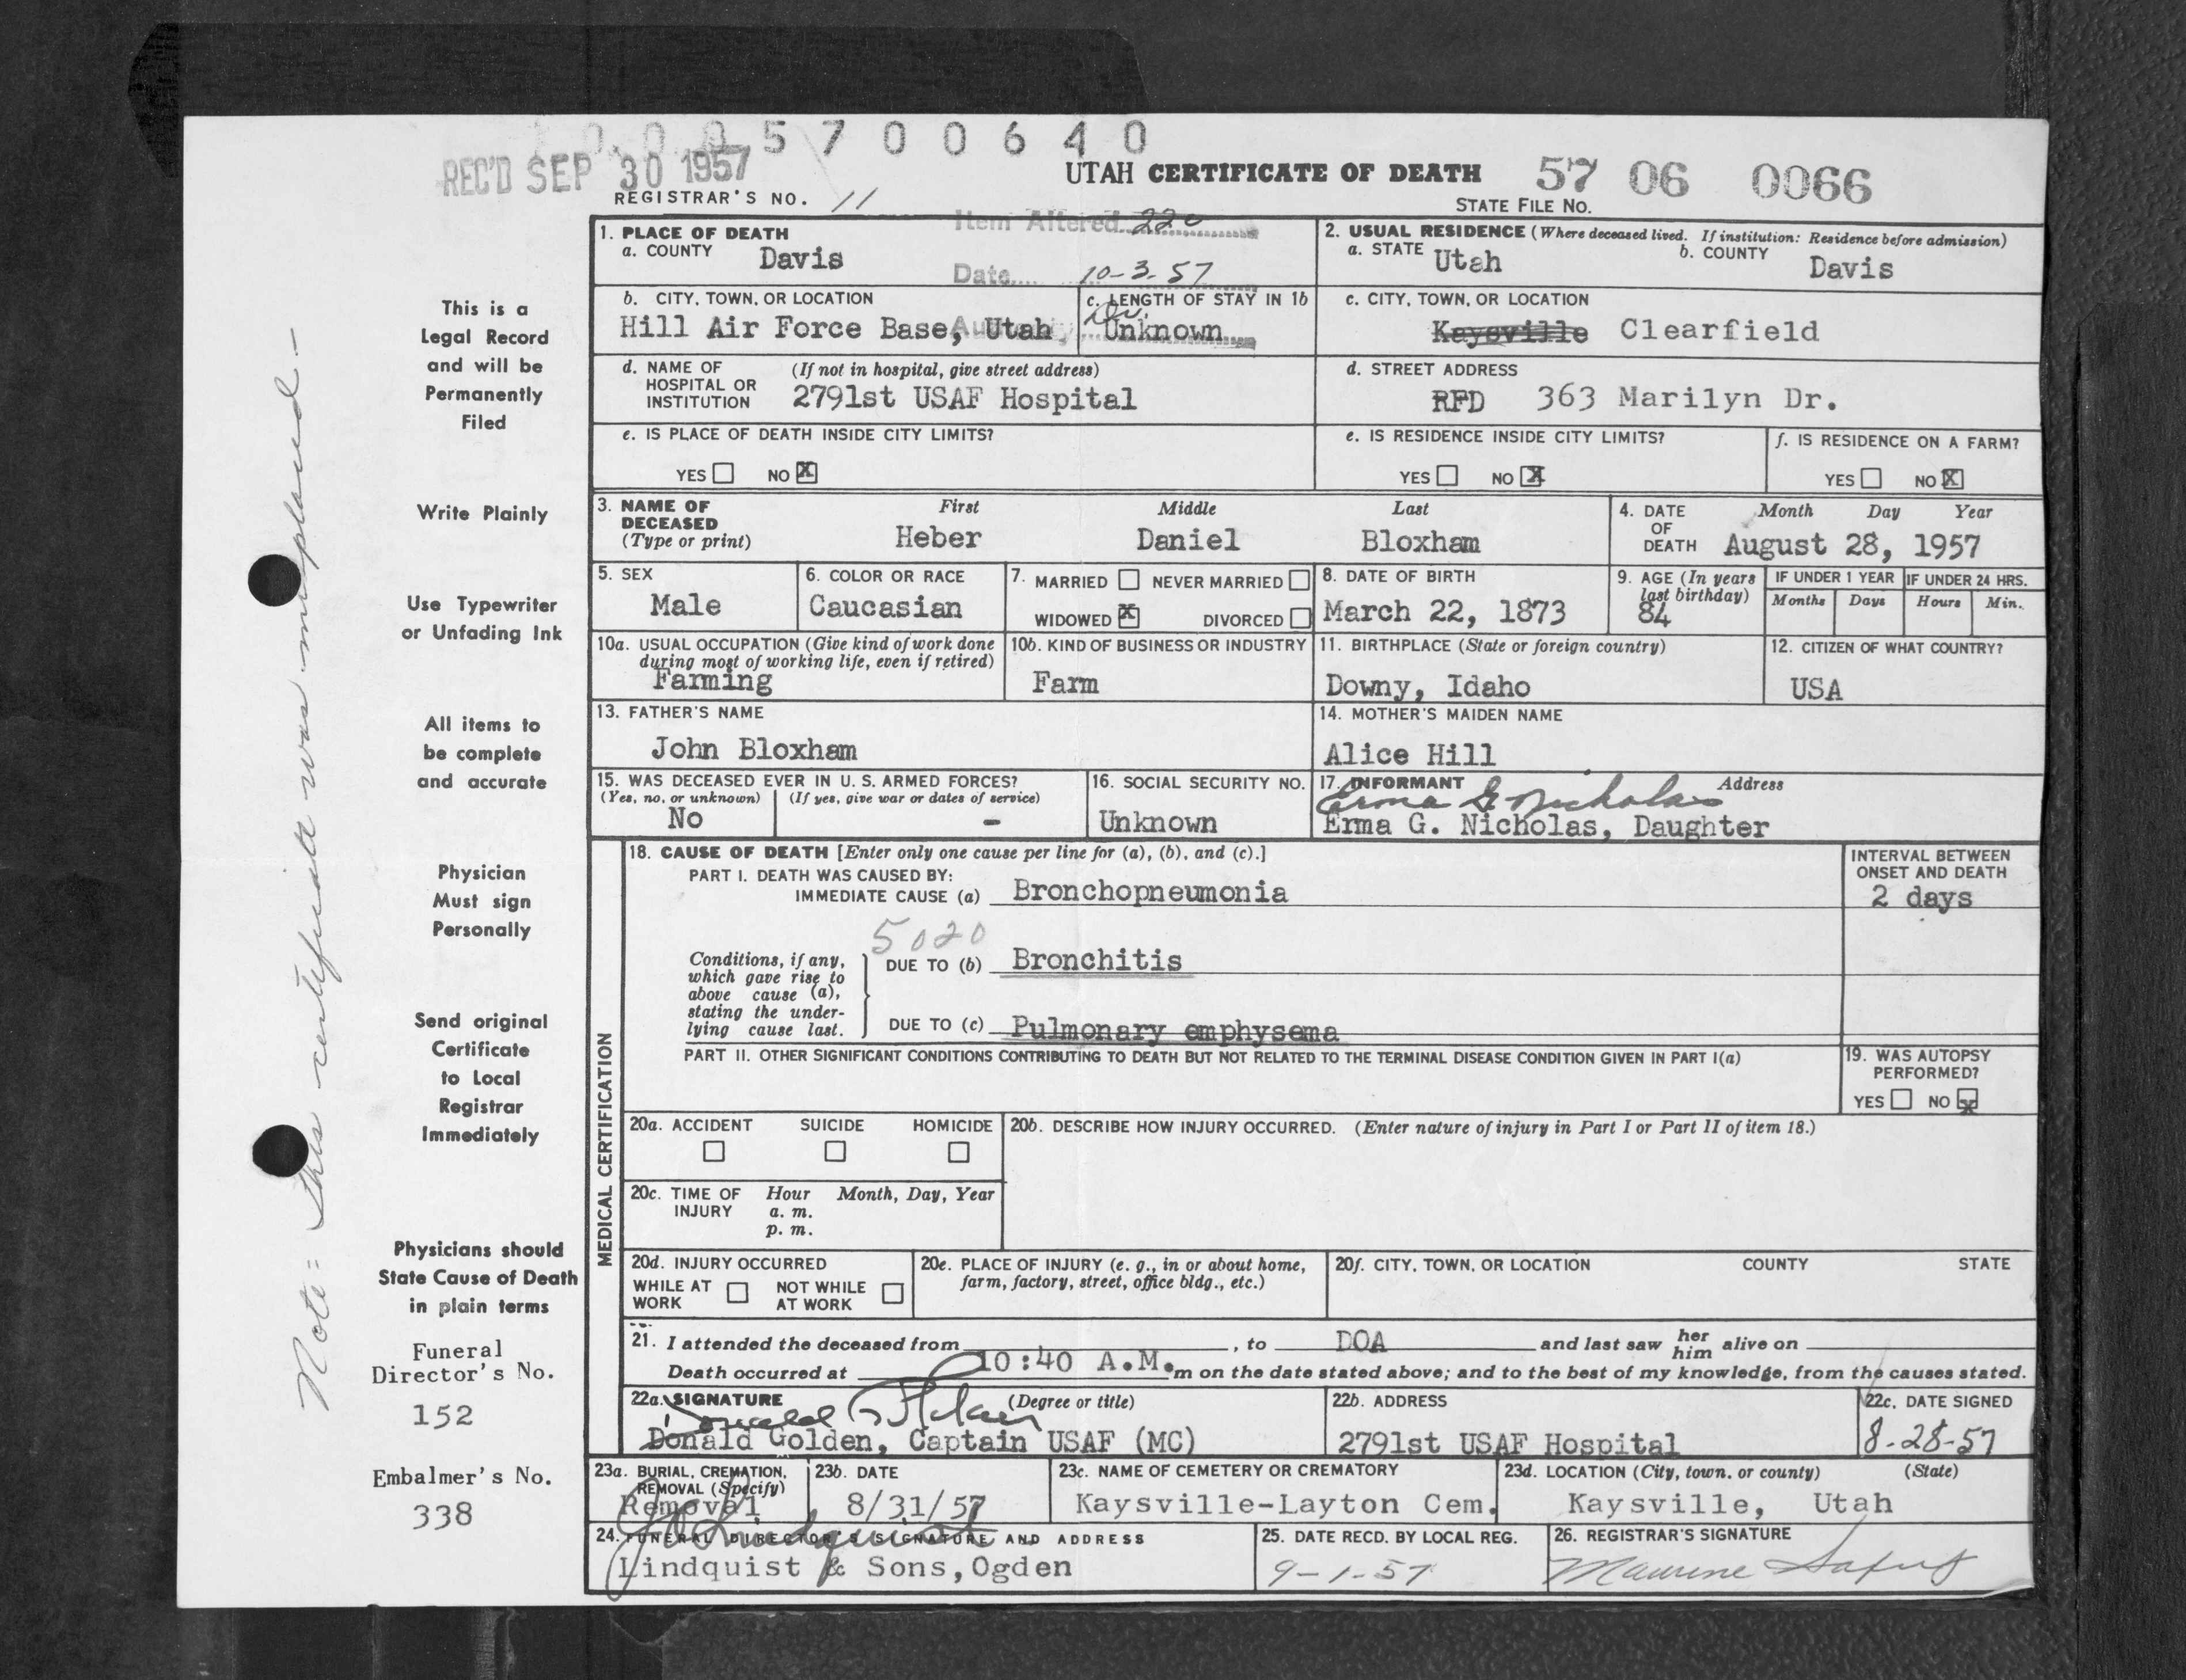 0 0 0 5 7 0 0 6 4 0
REC'D SEP 30 1957
REGISTRAR'S NO. 11
UTAH CERTIFICATE OF DEATH
57 06 0066
STATE FILE NO.
Item Altered 22c
Date 10-3-57
1. PLACE OF DEATH
a. COUNTY Davis
2. USUAL RESIDENCE (Where deceased lived. If institution: Residence before admission)
a. STATE Utah
b. COUNTY Davis
b. CITY, TOWN, OR LOCATION
Hill Air Force Base, Utah
c. LENGTH OF STAY IN 1b
Dr.
Unknown
c. CITY, TOWN, OR LOCATION
Kaysville Clearfield
d. NAME OF HOSPITAL OR INSTITUTION (If not in hospital, give street address)
2791st USAF Hospital
d. STREET ADDRESS
RFD 363 Marilyn Dr.
e. IS PLACE OF DEATH INSIDE CITY LIMITS?
YES NO X
e. IS RESIDENCE INSIDE CITY LIMITS?
YES NO X
f. IS RESIDENCE ON A FARM?
YES NO X
3. NAME OF DECEASED (Type or print)
First Middle Last
Heber Daniel Bloxham
4. DATE OF DEATH
Month Day Year
August 28, 1957
5. SEX
Male
6. COLOR OR RACE
Caucasian
7. MARRIED NEVER MARRIED
WIDOWED X DIVORCED
8. DATE OF BIRTH
March 22, 1873
9. AGE (In years last birthday)
84
IF UNDER 1 YEAR
Months Days
IF UNDER 24 HRS.
Hours Min.
10a. USUAL OCCUPATION (Give kind of work done during most of working life, even if retired)
Farming
10b. KIND OF BUSINESS OR INDUSTRY
Farm
11. BIRTHPLACE (State or foreign country)
Downy, Idaho
12. CITIZEN OF WHAT COUNTRY?
USA
13. FATHER'S NAME
John Bloxham
14. MOTHER'S MAIDEN NAME
Alice Hill
15. WAS DECEASED EVER IN U. S. ARMED FORCES?
(Yes, no, or unknown) (If yes, give war or dates of service)
No -
16. SOCIAL SECURITY NO.
Unknown
17. INFORMANT Address
Erma G. Nicholas
Erma G. Nicholas, Daughter
MEDICAL CERTIFICATION
18. CAUSE OF DEATH [Enter only one cause per line for (a), (b), and (c).]
PART I. DEATH WAS CAUSED BY:
IMMEDIATE CAUSE (a) Bronchopneumonia
INTERVAL BETWEEN ONSET AND DEATH
2 days
5020
Conditions, if any, which gave rise to above cause (a), stating the underlying cause last.
DUE TO (b) Bronchitis
DUE TO (c) Pulmonary emphysema
PART II. OTHER SIGNIFICANT CONDITIONS CONTRIBUTING TO DEATH BUT NOT RELATED TO THE TERMINAL DISEASE CONDITION GIVEN IN PART I(a)
19. WAS AUTOPSY PERFORMED?
YES NO X
20a. ACCIDENT SUICIDE HOMICIDE
20b. DESCRIBE HOW INJURY OCCURRED. (Enter nature of injury in Part I or Part II of item 18.)
20c. TIME OF INJURY Hour Month, Day, Year
a. m.
p. m.
20d. INJURY OCCURRED
WHILE AT WORK NOT WHILE AT WORK
20e. PLACE OF INJURY (e. g., in or about home, farm, factory, street, office bldg., etc.)
20f. CITY, TOWN, OR LOCATION COUNTY STATE
21. I attended the deceased from , to DOA and last saw her him alive on
Death occurred at 10:40 A.M. m on the date stated above; and to the best of my knowledge, from the causes stated.
22a. SIGNATURE (Degree or title)
Donald Golden
Donald Golden, Captain USAF (MC)
22b. ADDRESS
2791st USAF Hospital
22c. DATE SIGNED
8-28-57
23a. BURIAL, CREMATION, REMOVAL (Specify)
Removal
23b. DATE
8/31/57
23c. NAME OF CEMETERY OR CREMATORY
Kaysville-Layton Cem.
23d. LOCATION (City, town, or county) (State)
Kaysville, Utah
24. FUNERAL DIRECTOR'S SIGNATURE AND ADDRESS
Lindquist
Lindquist & Sons, Ogden
25. DATE RECD. BY LOCAL REG.
9-1-57
26. REGISTRAR'S SIGNATURE
Maurine
This is a
Legal Record
and will be
Permanently
Filed
Write Plainly
Use Typewriter
or Unfading Ink
All items to
be complete
and accurate
Physician
Must sign
Personally
Send original
Certificate
to Local
Registrar
Immediately
Physicians should
State Cause of Death
in plain terms
Funeral
Director's No.
152
Embalmer's No.
338
Note: This certificate was misplaced.-